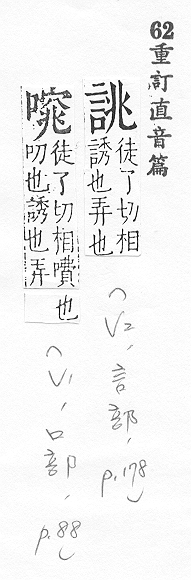 62 重訂直音篇
誂 徒了切相
誘也弄也
(V2,言部,
p.178)
㕹 徒了切相嘳也
叨也誘也弄
(V1,口部,
p.88)